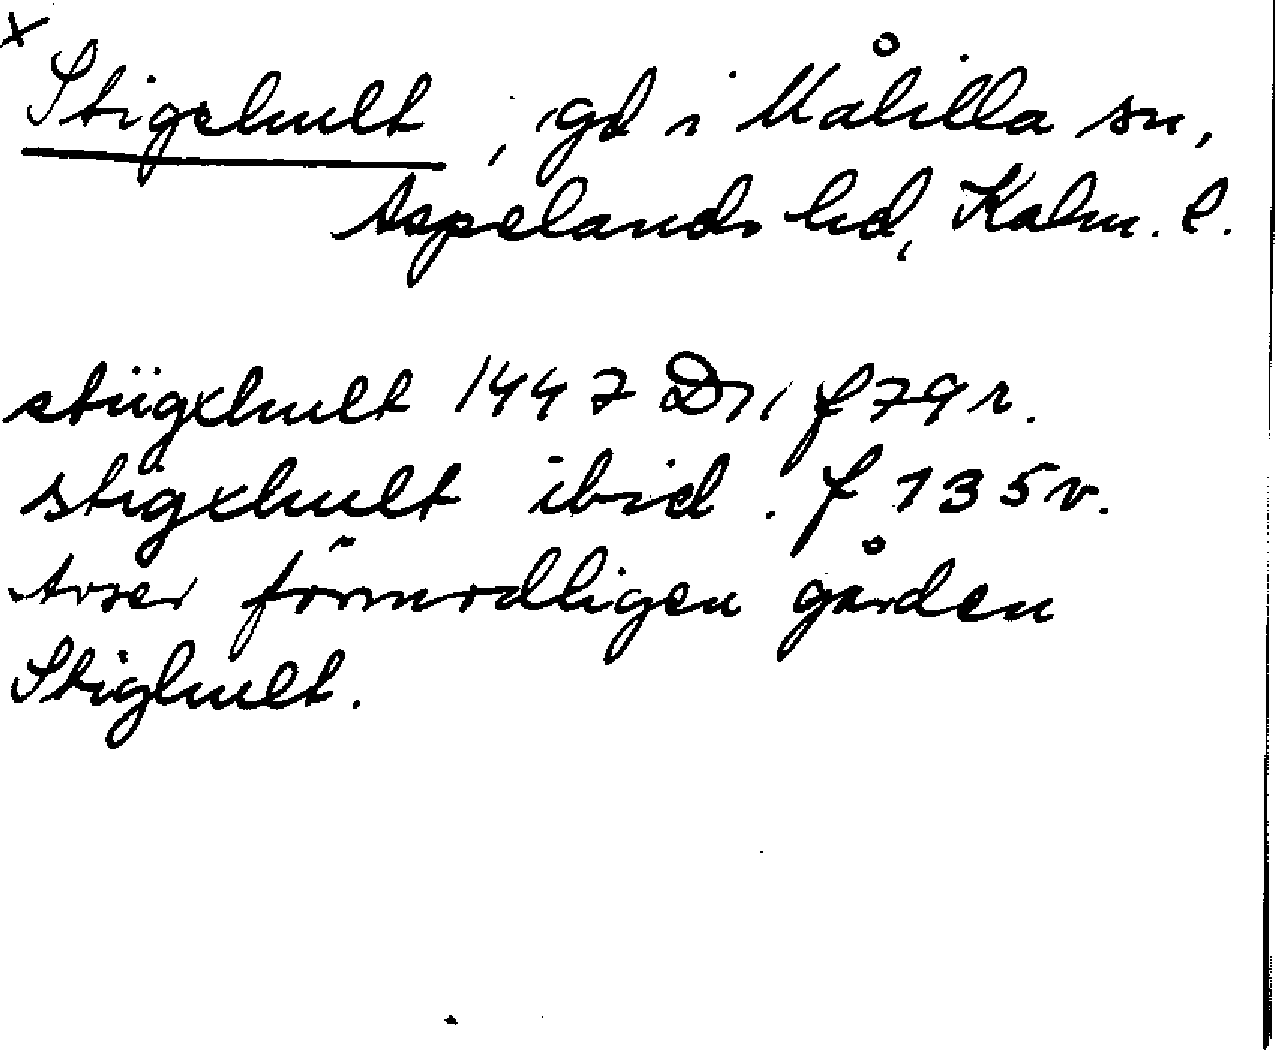 x
Stigshult, gd i Målilla sn,
Aspelands hd, Kalm. l.
stiigxhult 1447 D 11 f 79 r.
stigxhult ibid. f 135 v.
Avser förmodligen gården
Stighult.